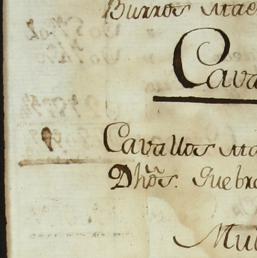 Burros Mae
Cava
Cavallos Ma
Dhos. Quebra
Mul